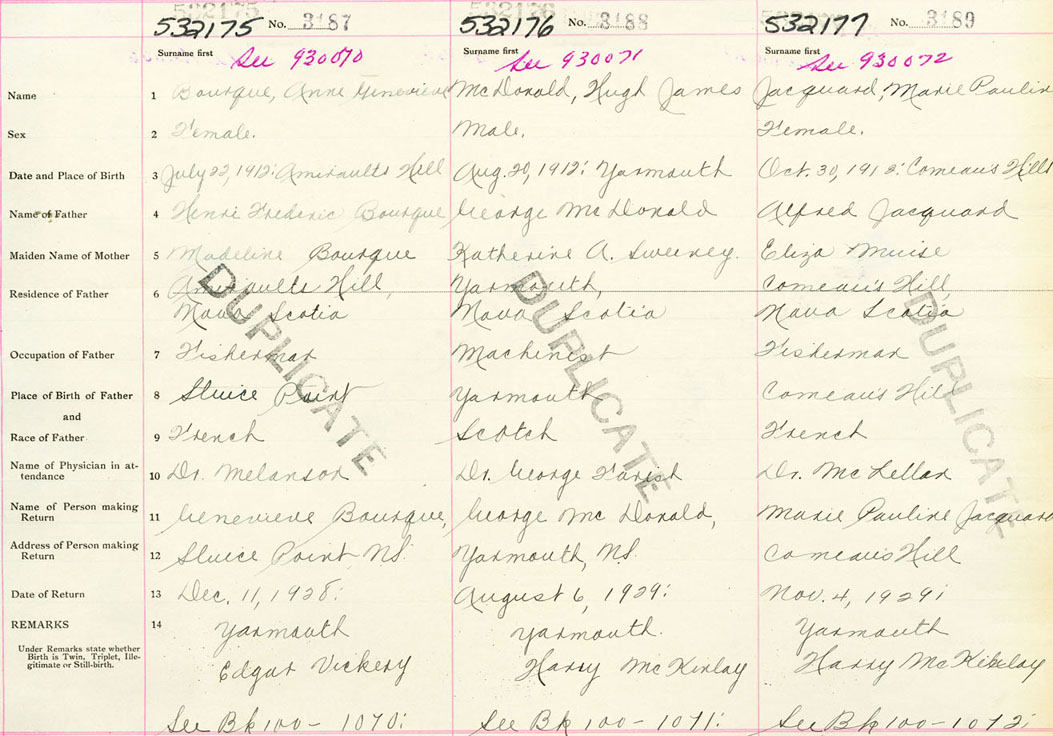 532175 No. 3187 532176 No. 3188 532177 No. 3189
Surname first Surname first Surname first
See 930070 See 930071 See 930072
Name 1 Bourque, Anne Genevieve McDonald, Hugh James Jacquard, Marie Paulin
Sex 2 Female. Male. Female.
Date and Place of Birth 3 July 22, 1912: Amiraults Hill Aug. 20, 1912: Yarmouth Oct. 30, 1912: Comeau's Hills
Name of Father 4 Henri Frederic Bourque, George McDonald Alfred Jacquard
Maiden Name of Mother 5 Madeline Bourque Katherine A. Sweeney. Eliza Muise
Residence of Father 6 Amiraults Hill, Yarmouth, Comeau's Hill,
Nova Scotia Nova Scotia Nova Scotia
Occupation of Father 7 Fisherman Machinist Fisherman
Place of Birth of Father 8 Sluice Point Yarmouth Comeau's Hill
and
Race of Father 9 French Scotch French
Name of Physician in at-
tendance 10 Dr. Melanson Dr. George Farish Dr. McLellan
Name of Person making
Return 11 Genevieve Bourque, George McDonald, Marie Pauline Jacquard
Address of Person making
Return 12 Sluice Point, NS. Yarmouth, NS. Comeau's Hill
Date of Return 13 Dec. 11, 1928: August 6, 1929: Nov. 4, 1929:
REMARKS 14 Yarmouth Yarmouth. Yarmouth
Under Remarks state whether
Birth is Twin, Triplet, Ille-
gitimate or Still-birth.
Edgar Vickery Harry McKinlay Harry McKinlay
See Bk 100 - 1070: See Bk 100 - 1071: See Bk 100 - 1072:
DUPLICATE
DUPLICATE
DUPLICATE